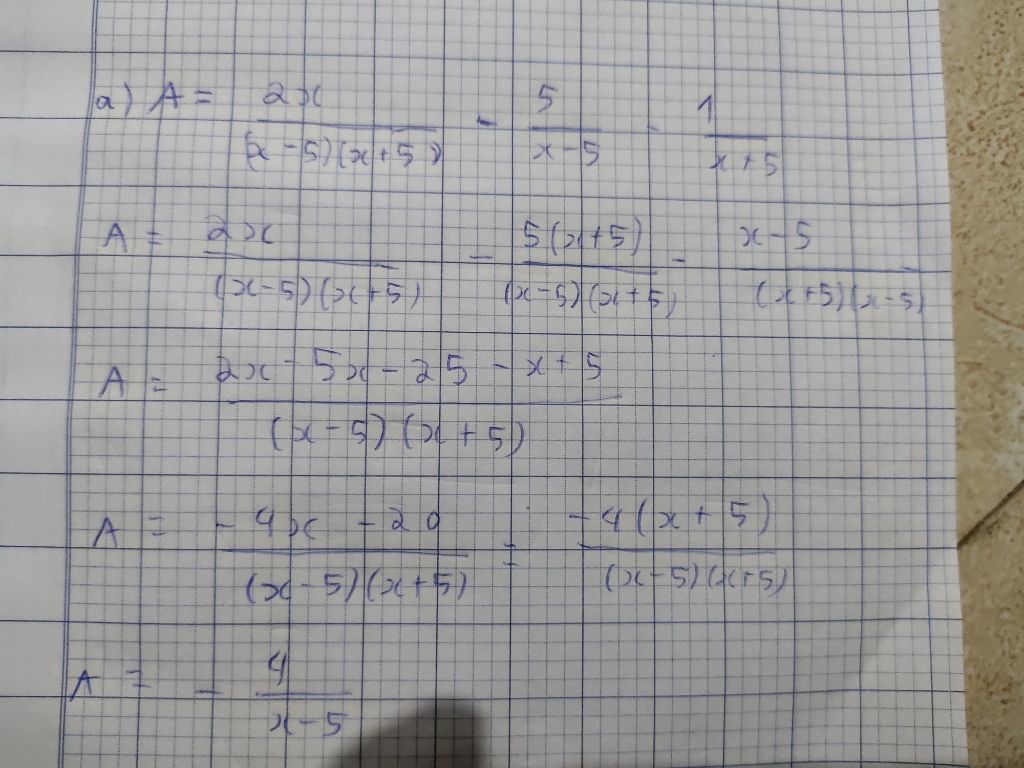 a) A = 2x / (x-5)(x+5) - 5 / x-5 - 1 / x+5
A = 2x / (x-5)(x+5) - 5(x+5) / (x-5)(x+5) - x-5 / (x+5)(x-5)
A = 2x - 5x - 25 - x + 5 / (x-5)(x+5)
A = -4x - 20 / (x-5)(x+5) = -4(x+5) / (x-5)(x+5)
A = - 4 / x-5